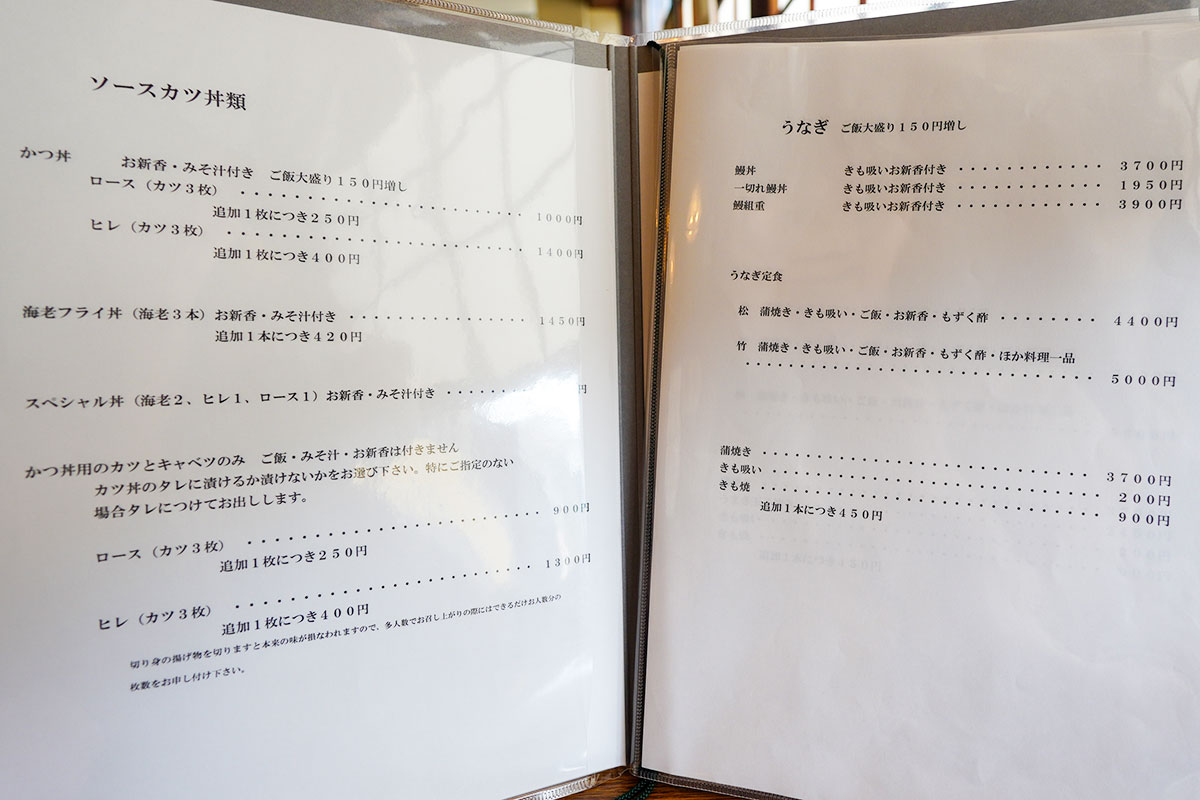 ソースカツ丼類
かつ丼　お新香・みそ汁付き　ご飯大盛り１５０円増し
ロース（カツ３枚）・・・・・・・・・・・・・・・・・・・・・１０００円
追加１枚につき２５０円
ヒレ（カツ３枚）・・・・・・・・・・・・・・・・・・・・・・１４００円
追加１枚につき４００円
海老フライ丼（海老３本）お新香・みそ汁付き・・・・・・・・・・・・・１４５０円
追加１本につき４２０円
スペシャル丼（海老２、ヒレ１、ロース１）お新香・みそ汁付き・・・・・・・・円
かつ丼用のカツとキャベツのみ　ご飯・みそ汁・お新香は付きません
カツ丼のタレに漬けるか漬けないかをお選び下さい。特にご指定のない
場合タレにつけてお出しします。
ロース（カツ３枚）・・・・・・・・・・・・・・・・・・・・・９００円
追加１枚につき２５０円
ヒレ（カツ３枚）・・・・・・・・・・・・・・・・・・・・・・１３００円
追加１枚につき４００円
切り身の揚げ物を切りますと本来の味が損なわれますので、多人数でお召し上がりの際にはできるだけお人数分の
枚数をお申し付け下さい。
うなぎ　ご飯大盛り１５０円増し
鰻丼　きも吸いお新香付き・・・・・・・・・・・３７００円
一切れ鰻丼　きも吸いお新香付き・・・・・・・・・・・１９５０円
鰻組重　きも吸いお新香付き・・・・・・・・・・・３９００円
うなぎ定食
松　蒲焼き・きも吸い・ご飯・お新香・もずく酢・・・・・・・・４４００円
竹　蒲焼き・きも吸い・ご飯・お新香・もずく酢・ほか料理一品
・・・・・・・・・・・・・・・・・・・・・・・・・・・・・５０００円
蒲焼き・・・・・・・・・・・・・・・・・・・・・・・・・・３７００円
きも吸い・・・・・・・・・・・・・・・・・・・・・・・・・２００円
きも焼・・・・・・・・・・・・・・・・・・・・・・・・・・９００円
追加１本につき４５０円